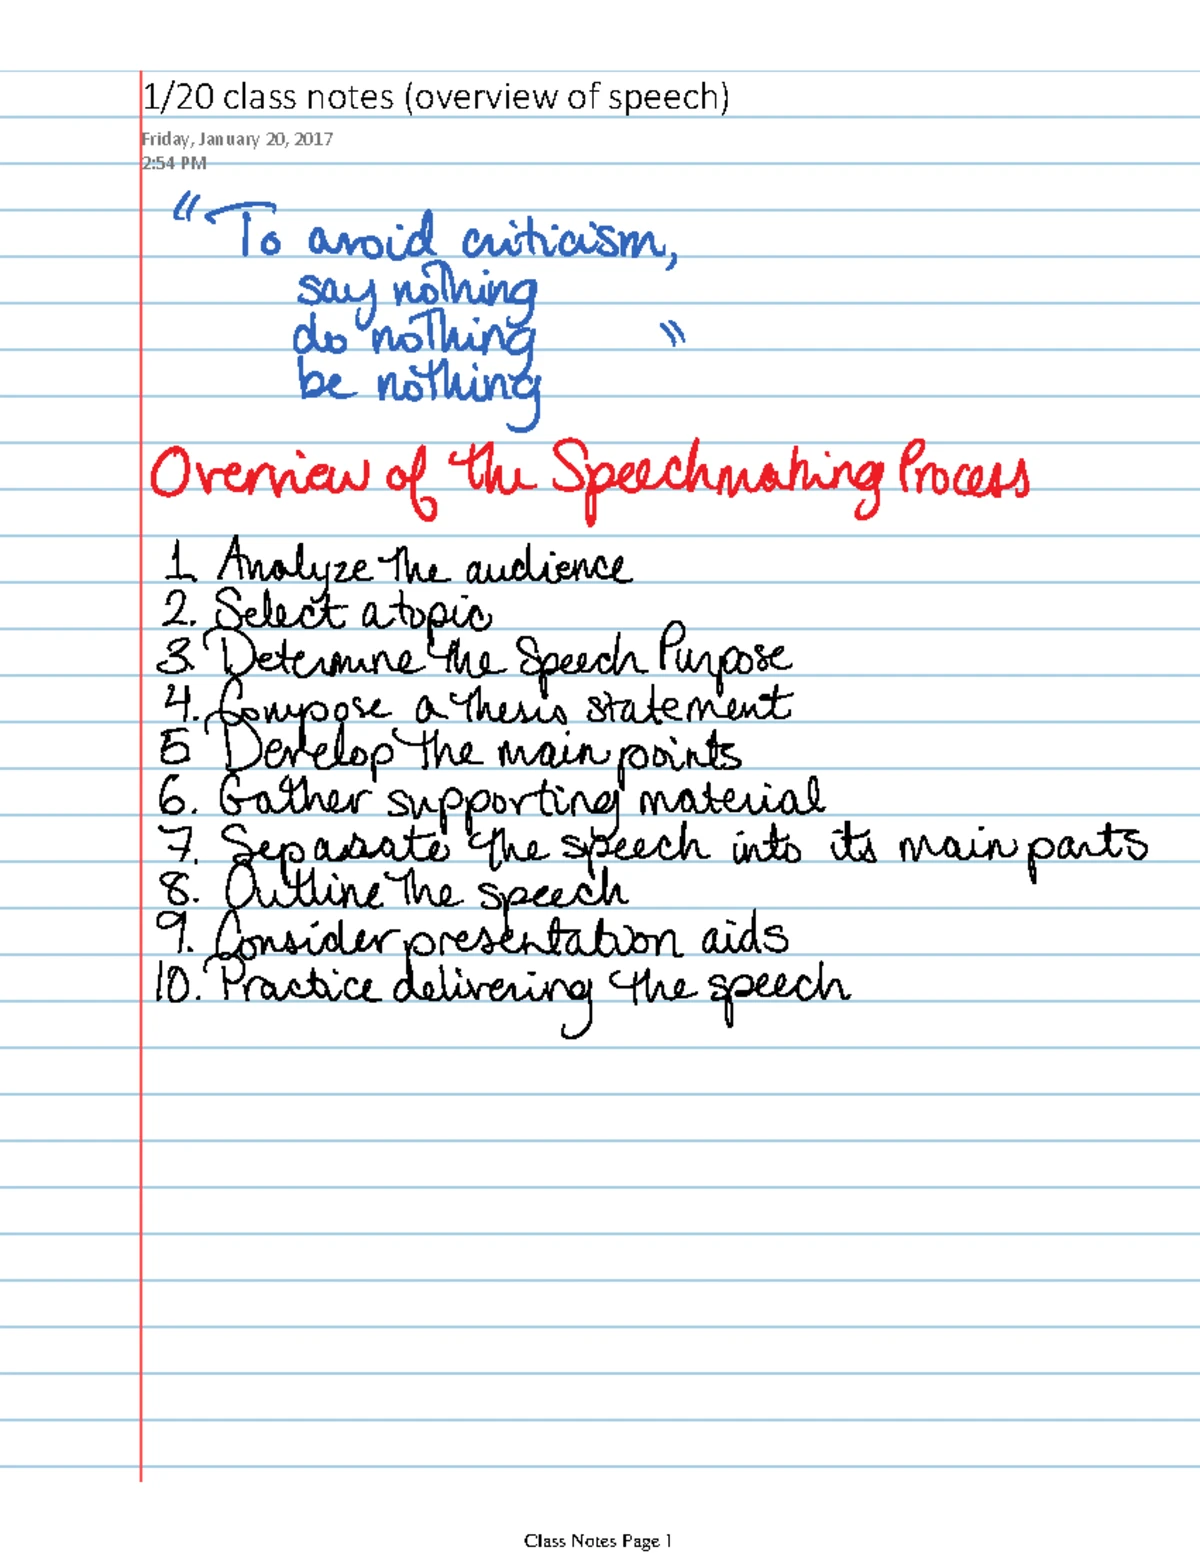 1/20 class notes (overview of speech)
Friday, January 20, 2017
2:54 PM
"To avoid criticism,
say nothing
do nothing "
be nothing
Overview of the Speechmaking Process
1. Analyze the audience
2. Select a topic
3. Determine the Speech Purpose
4. Compose a thesis statement
5 Develop the main points
6. Gather supporting material
7. Separate the speech into its main parts
8. Outline the speech
9. Consider presentation aids
10. Practice delivering the speech
Class Notes Page 1